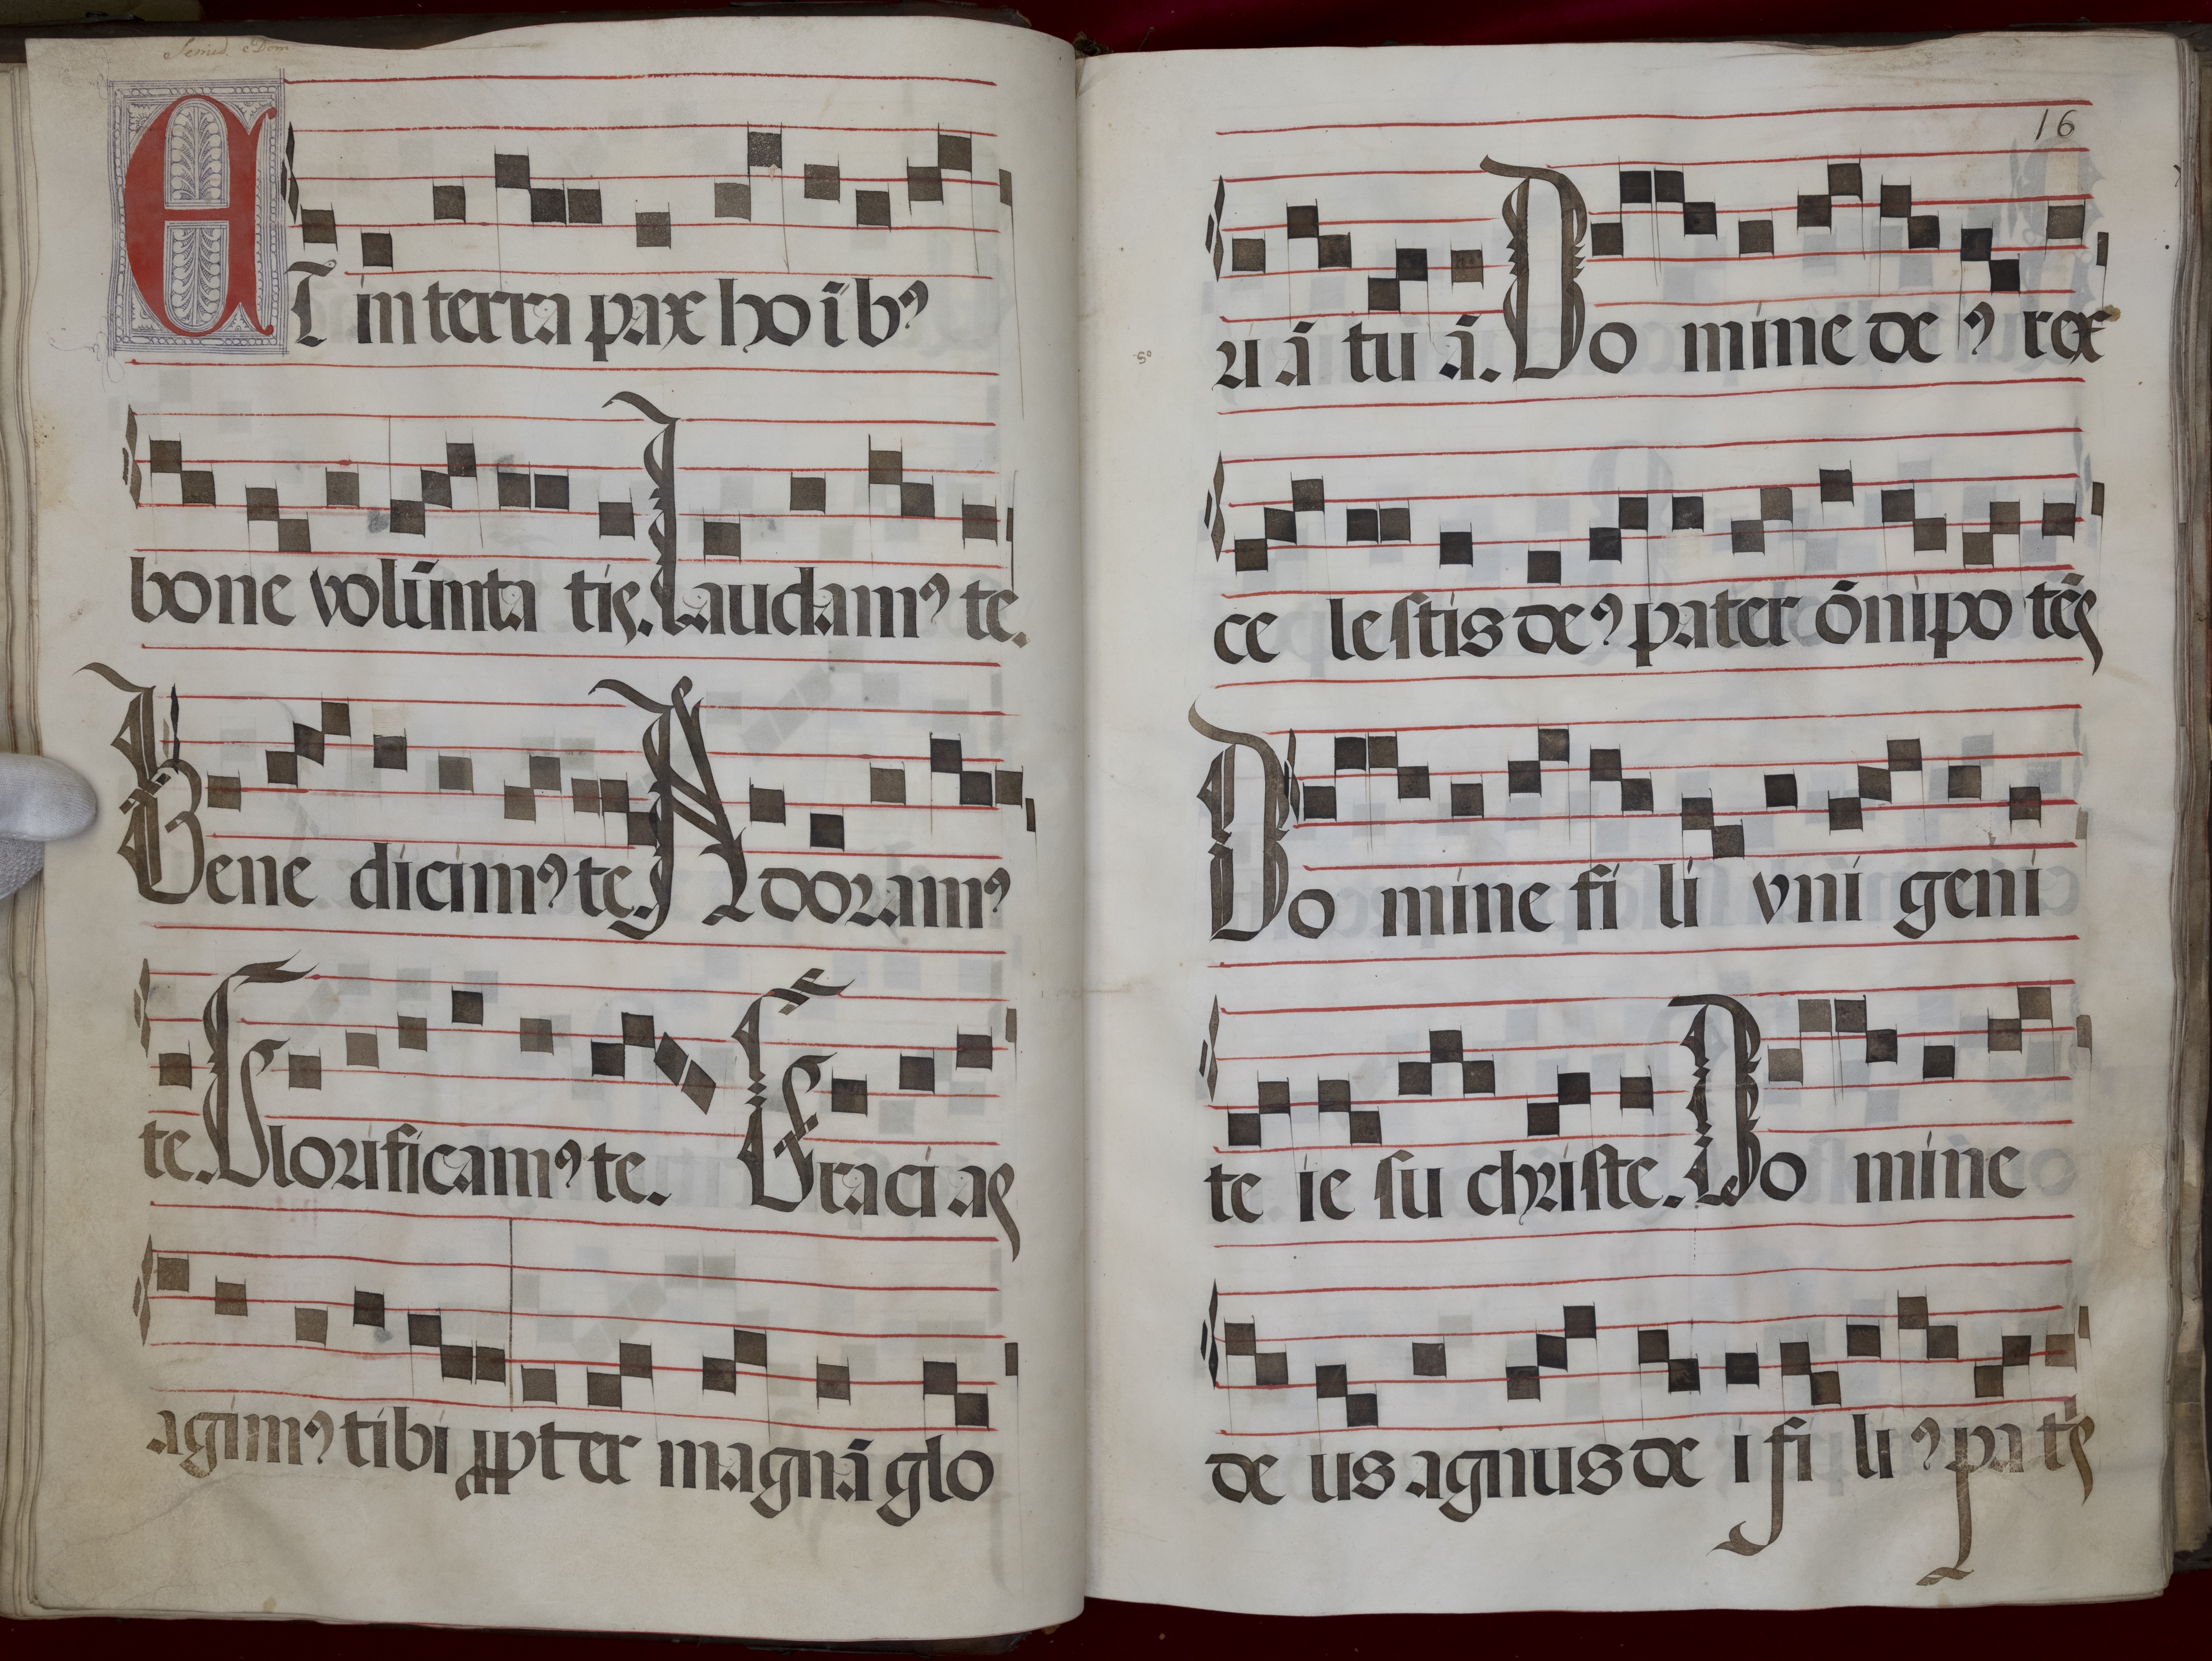 Semid. Dom
ET in terra pax hoībꝰ
bone volūnta tis. Laudamꝰ te.
Bene dicimꝰ te. Adoramꝰ
te. Glorificamꝰ te. Gracias
agimꝰ tibi ꝓpter magnā glo
16
riā tuā. Do mine deꝰ rex
ce lestis deꝰ pater ōnipo tēs
Do mine fi li vni geni
te ie su christe. Do mine
de us agnus de i fi liꝰ pa tꝭs